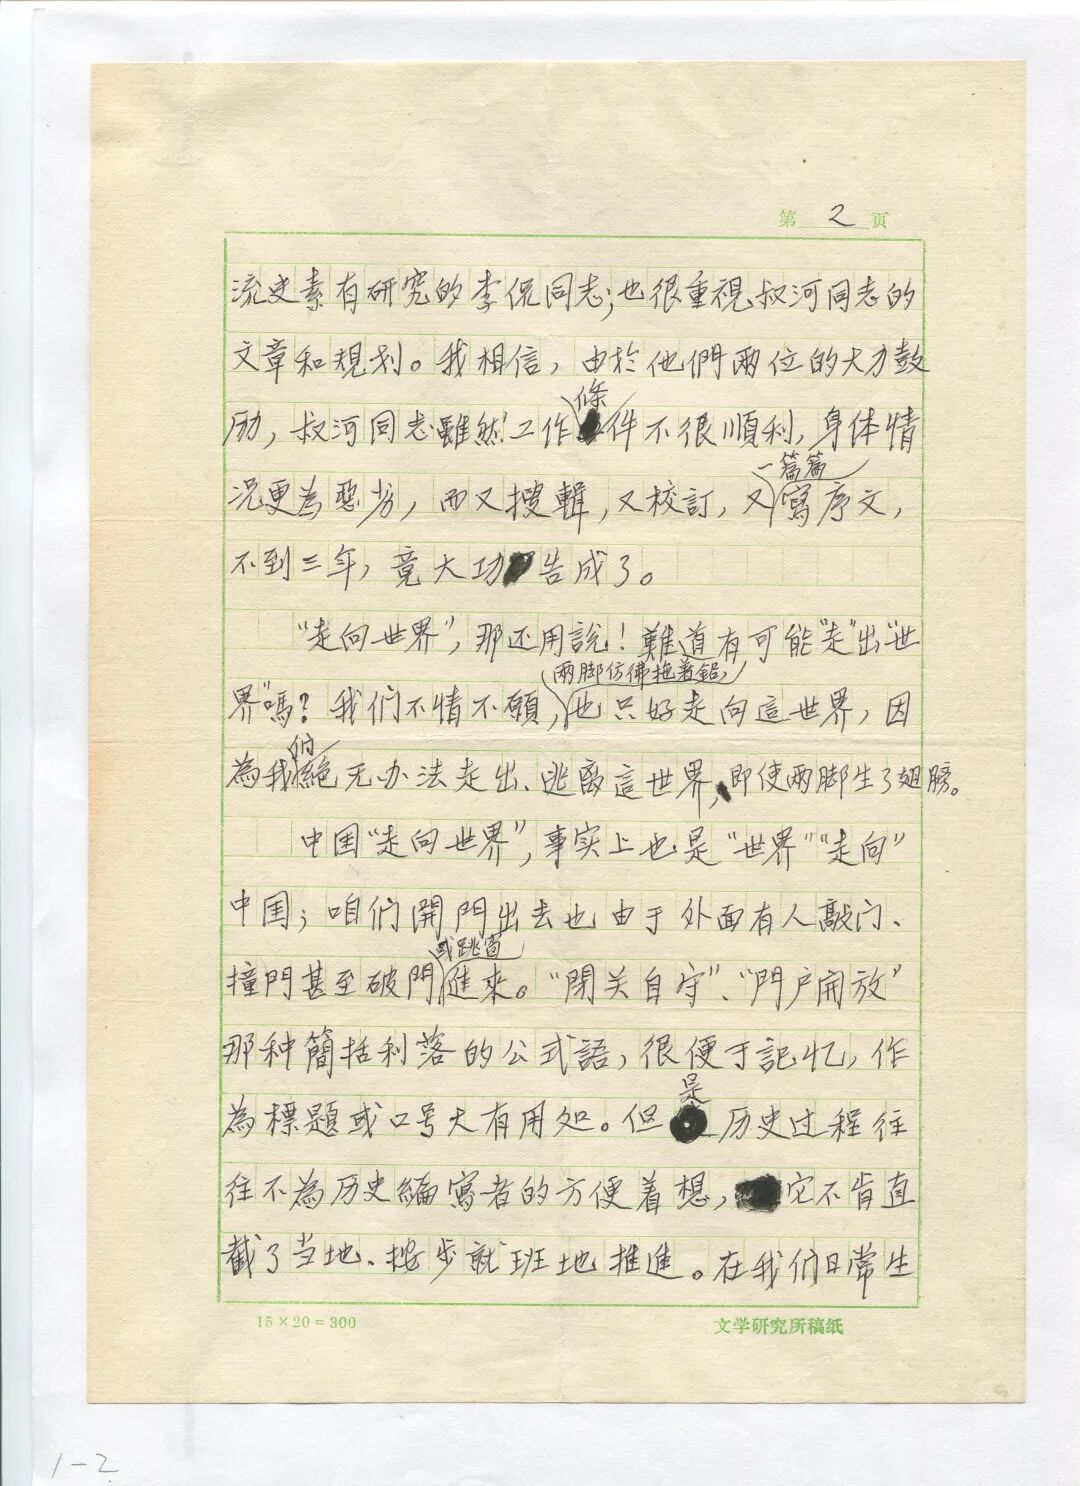 第 2 页
流史素有研究的李侃同志；也很重視叔河同志的
文章和規划。我相信，由於他們兩位的大力鼓
励，叔河同志雖然工作條件不很順利，身体情
況更為惡劣，而又搜輯，又校訂，又一篇篇寫序文，
不到三年，竟大功告成了。
“走向世界”，那还用說！難道有可能“走”出“世
界”嗎？我们不情不願，兩脚仿佛拖着鉛，也只好走向這世界，因
為我们絕无办法走出、逃离這世界，即使兩脚生了翅膀。
中国“走向世界”，事实上也是“世界”“走向”
中国；咱们開門出去也由于外面有人敲门、
撞門甚至破門或跳窗進來。“閉关自守”、“門户開放”
那种簡括利落的公式語，很便于記忆，作
為標題或口号大有用处。但是历史过程往
往不為历史編寫者的方便着想，它不肯直
截了当地、按步就班地推進。在我们日常生
15×20=300
文学研究所稿纸
1-2